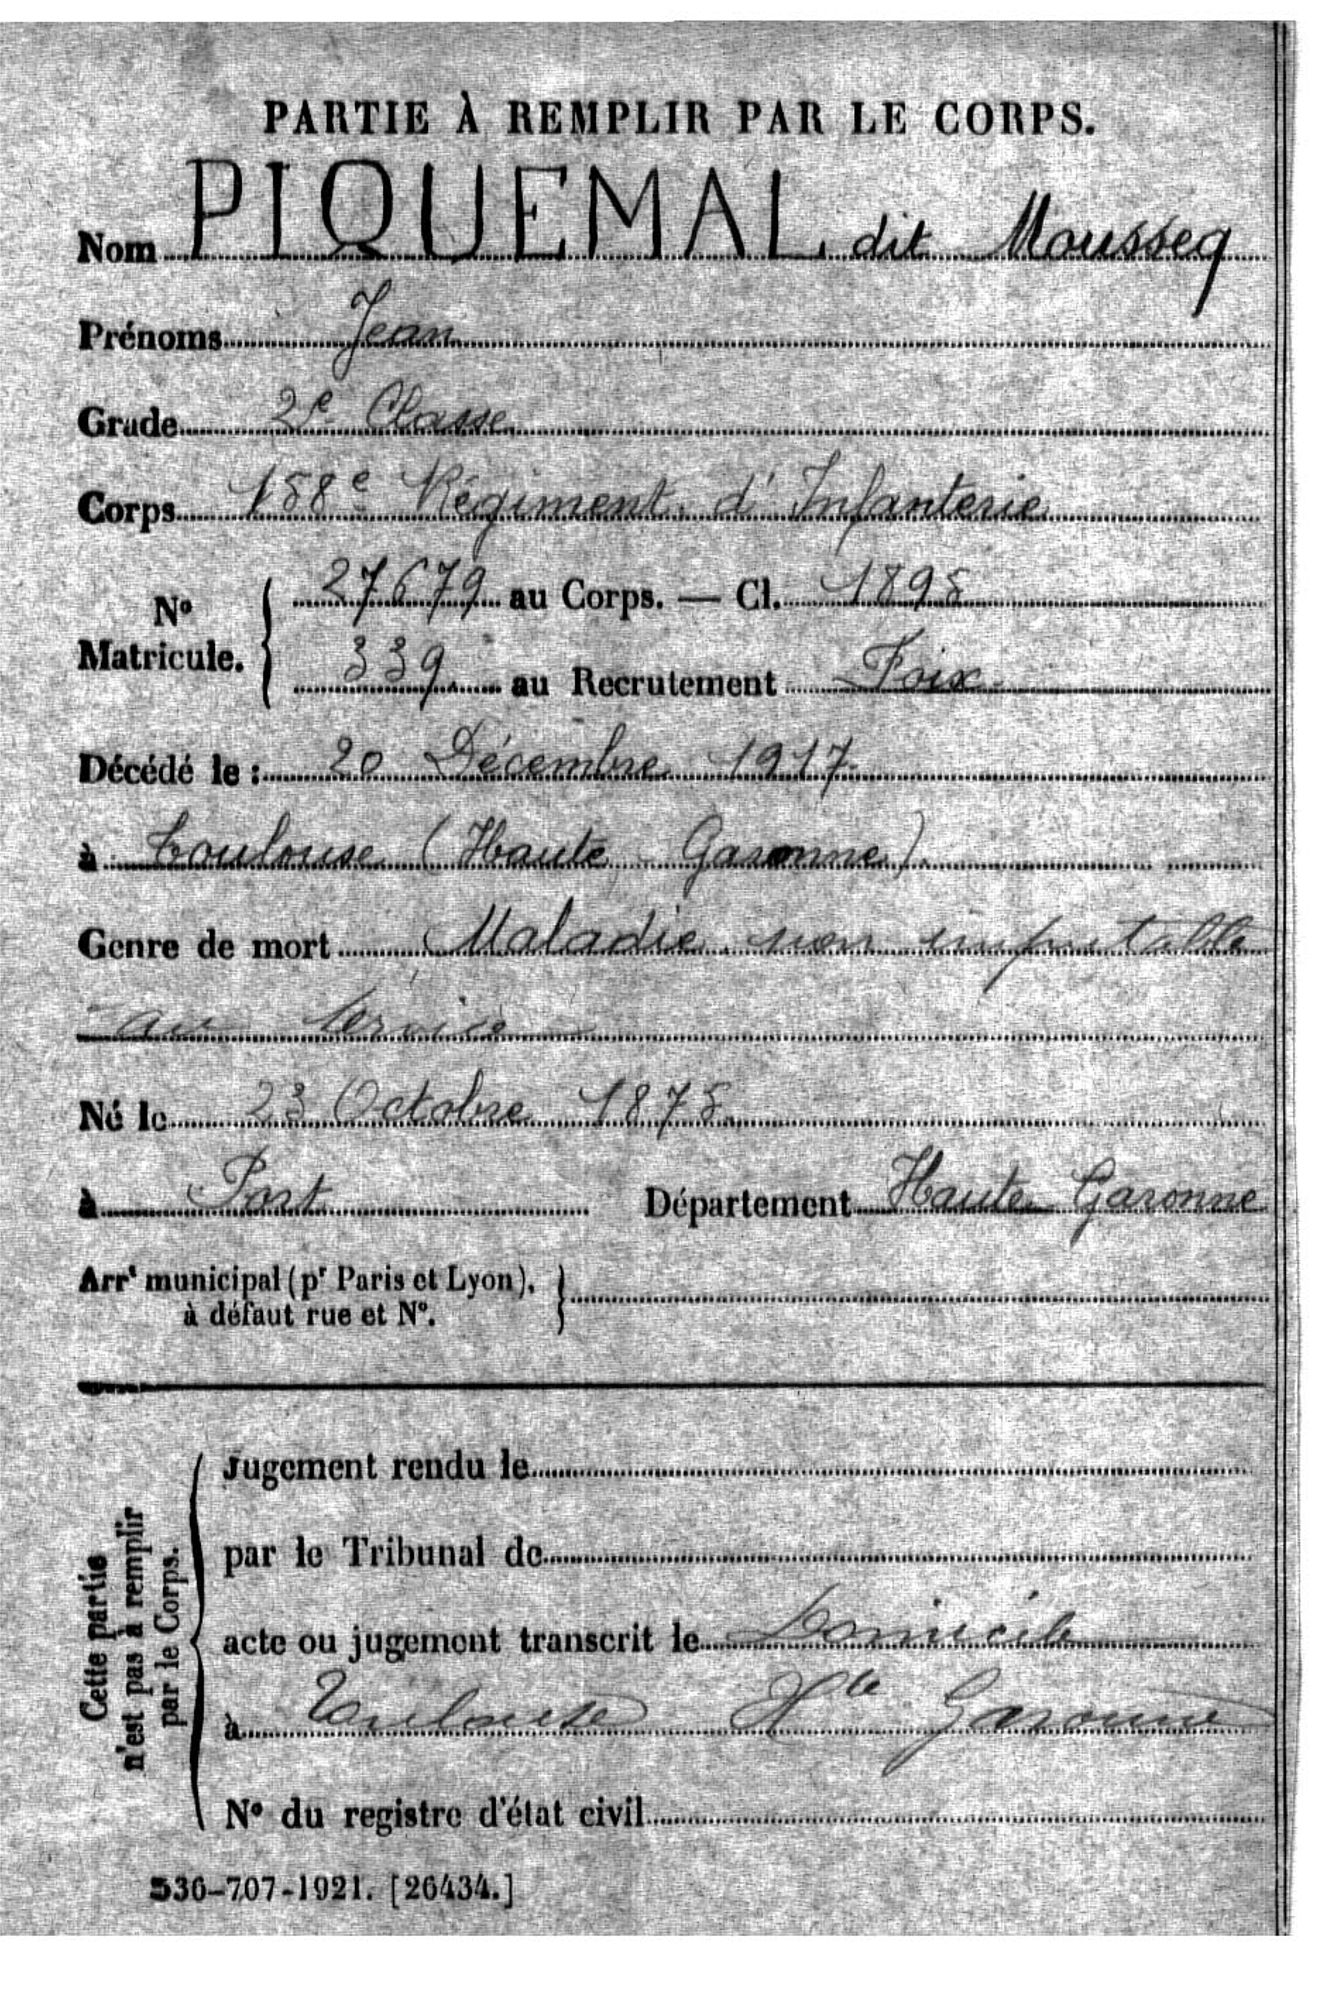 PARTIE À REMPLIR PAR LE CORPS.
Nom PIQUEMAL dit Mousseq
Prénoms Jean
Grade 2e Classe
Corps 158e Régiment d'Infanterie
No Matricule. { 27679 au Corps. — Cl. 1895
339 au Recrutement Foix
Décédé le : 20 Décembre 1917
à Toulouse (Haute Garonne)
Genre de mort Maladie non imputable
au service
Né le 23 Octobre 1875
à Port Département Haute Garonne
Arrt municipal (pr Paris et Lyon), }
à défaut rue et No.
Cette partie
n'est pas à remplir
par le Corps.
Jugement rendu le
par le Tribunal de
acte ou jugement transcrit le Domicile
à Toulouse Hte Garonne
No du registre d'état civil
536-707-1921. [26434.]